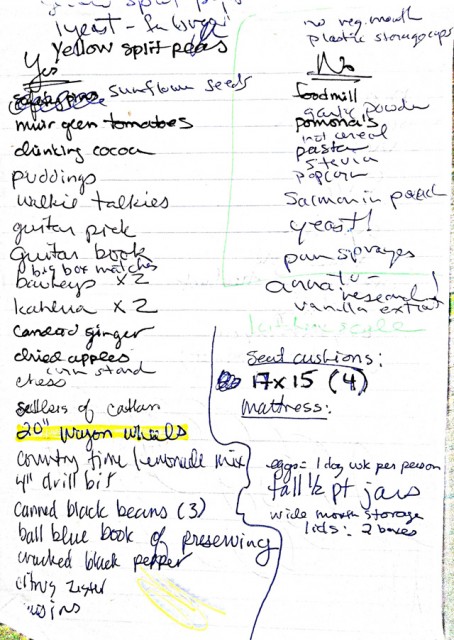 yellow split peas
Yes
sunflower seeds
muir glen tomatoes
drinking cocoa
puddings
walkie talkies
guitar pick
guitar book
big box matches
baileys x 2
kahlua x 2
candied ginger
dried apples
stand
chess
settlers of catan
20" wagon wheels
country time lemonade mix
4" drill bit
canned black beans (3)
ball blue book of preserving
cracked black pepper
citrus zester
no reg. mouth
plastic storage caps
No
foodmill
garlic powder
pomona's
hot cereal
pasta
stevia
popcorn
Salmon in
yeast!
pan sprayer
research!
vanilla extract
kitchen scale
Seat cushions:
17 x 15 (4)
mattress:
eggs = 1 day wk per person
tall 1/2 pt jars
wide mouth storage
lids: 2 boxes